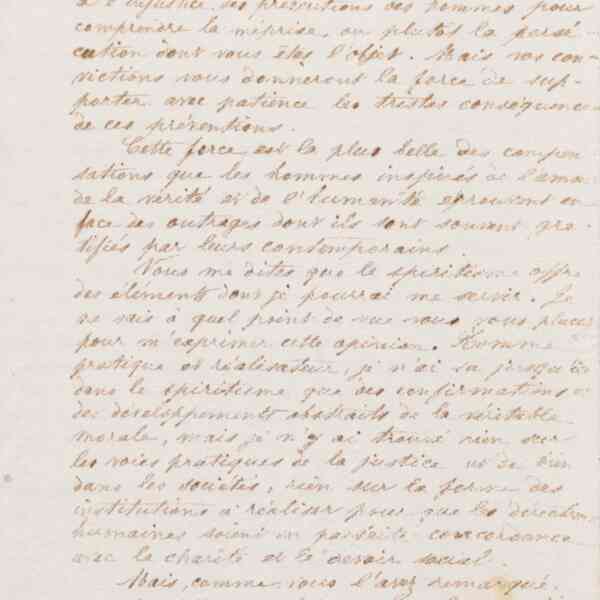 à l'injustice, des préventions des hommes pour
comprendre la méprise, ou plutôt la persé-
cution dont vous êtes l'objet. Mais vos con-
victions vous donneront la force de sup-
porter avec patience les tristes conséquences
de ces préventions.
Cette force est la plus belle des compen-
sations que les hommes inspirés de l'amour
de la vérité et de l'humanité éprouvent en
face des outrages dont ils sont souvent gra-
tifiés par leurs contemporains.
Vous me dites que le spiritisme offre
des éléments dont je pourrai me servir. Je
ne sais à quel point de vue vous vous placez
pour m'exprimer cette opinion. Homme
pratique et réalisateur, je n'ai vu jusqu'ici
dans le spiritisme que des confirmations et
des développements abstraits de la véritable
morale, mais je n'y ai trouvé rien sur
les voies pratiques de la justice et du bien
dans les sociétés, rien sur la forme des
institutions à réaliser pour que les directions
humaines soient en parfaite concordance
avec la charité et le devoir social.
Mais, comme vous l'avez remarqué,